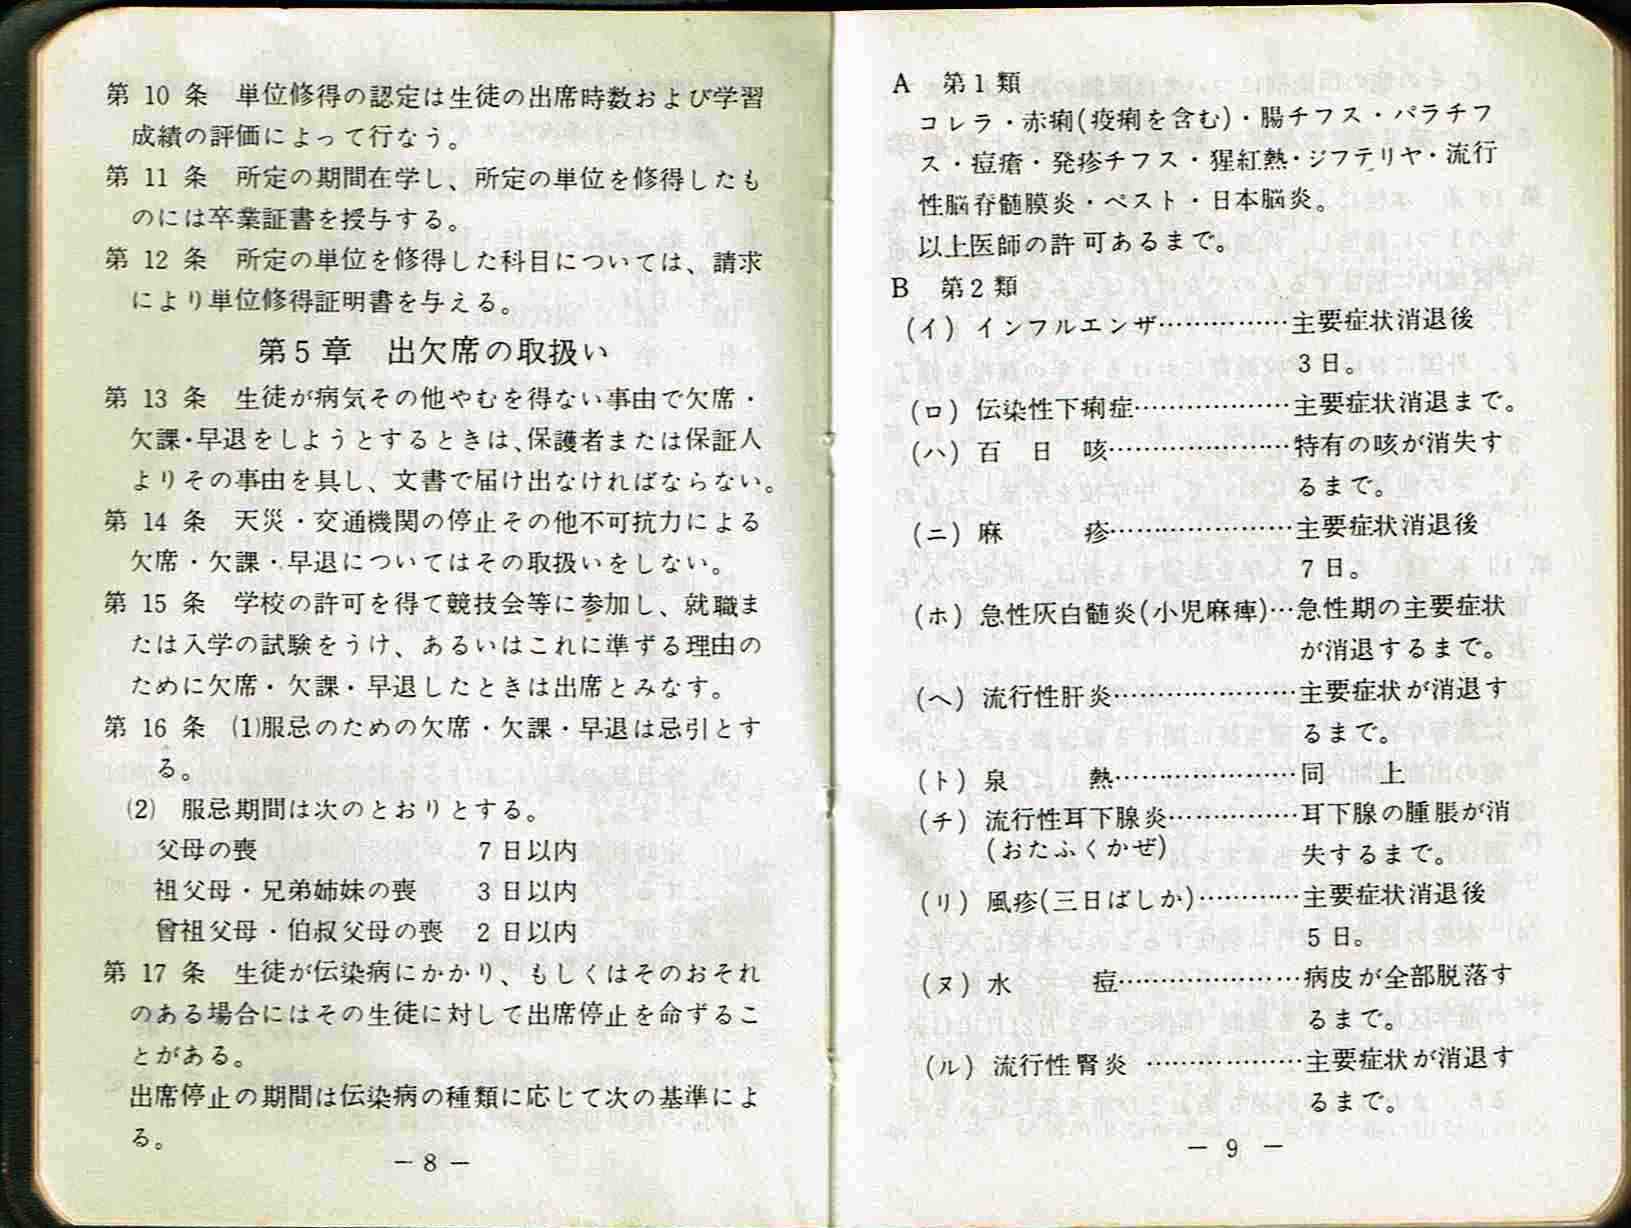 第 10 条　単位修得の認定は生徒の出席時数および学習
成績の評価によって行なう。
第 11 条　所定の期間在学し、所定の単位を修得したも
のには卒業証書を授与する。
第 12 条　所定の単位を修得した科目については、請求
により単位修得証明書を与える。
第5章　出欠席の取扱い
第 13 条　生徒が病気その他やむを得ない事由で欠席・
欠課・早退をしようとするときは、保護者または保証人
よりその事由を具し、文書で届け出なければならない。
第 14 条　天災・交通機関の停止その他不可抗力による
欠席・欠課・早退についてはその取扱いをしない。
第 15 条　学校の許可を得て競技会等に参加し、就職ま
たは入学の試験をうけ、あるいはこれに準ずる理由の
ために欠席・欠課・早退したときは出席とみなす。
第 16 条　(1)服忌のための欠席・欠課・早退は忌引とす
る。
(2)　服忌期間は次のとおりとする。
父母の喪　7日以内
祖父母・兄弟姉妹の喪　3日以内
曾祖父母・伯叔父母の喪　2日以内
第 17 条　生徒が伝染病にかかり、もしくはそのおそれ
のある場合にはその生徒に対して出席停止を命ずるこ
とがある。
出席停止の期間は伝染病の種類に応じて次の基準によ
る。
－8－
A　第1類
コレラ・赤痢(疫痢を含む)・腸チフス・パラチフ
ス・痘瘡・発疹チフス・猩紅熱・ジフテリヤ・流行
性脳脊髄膜炎・ペスト・日本脳炎。
以上医師の許可あるまで。
B　第2類
(イ) インフルエンザ……………主要症状消退後
3日。
(ロ) 伝染性下痢症………………主要症状消退まで。
(ハ) 百　日　咳…………………特有の咳が消失す
るまで。
(ニ) 麻　　　疹…………………主要症状消退後
7日。
(ホ) 急性灰白髄炎(小児麻痺)…急性期の主要症状
が消退するまで。
(ヘ) 流行性肝炎…………………主要症状が消退す
るまで。
(ト) 泉　　　熱…………………同　　上
(チ) 流行性耳下腺炎……………耳下腺の腫脹が消
(おたふくかぜ)　失するまで。
(リ) 風疹(三日ばしか)…………主要症状消退後
5日。
(ヌ) 水　　　痘…………………病皮が全部脱落す
るまで。
(ル) 流行性腎炎 ………………主要症状が消退す
るまで。
－ 9 －